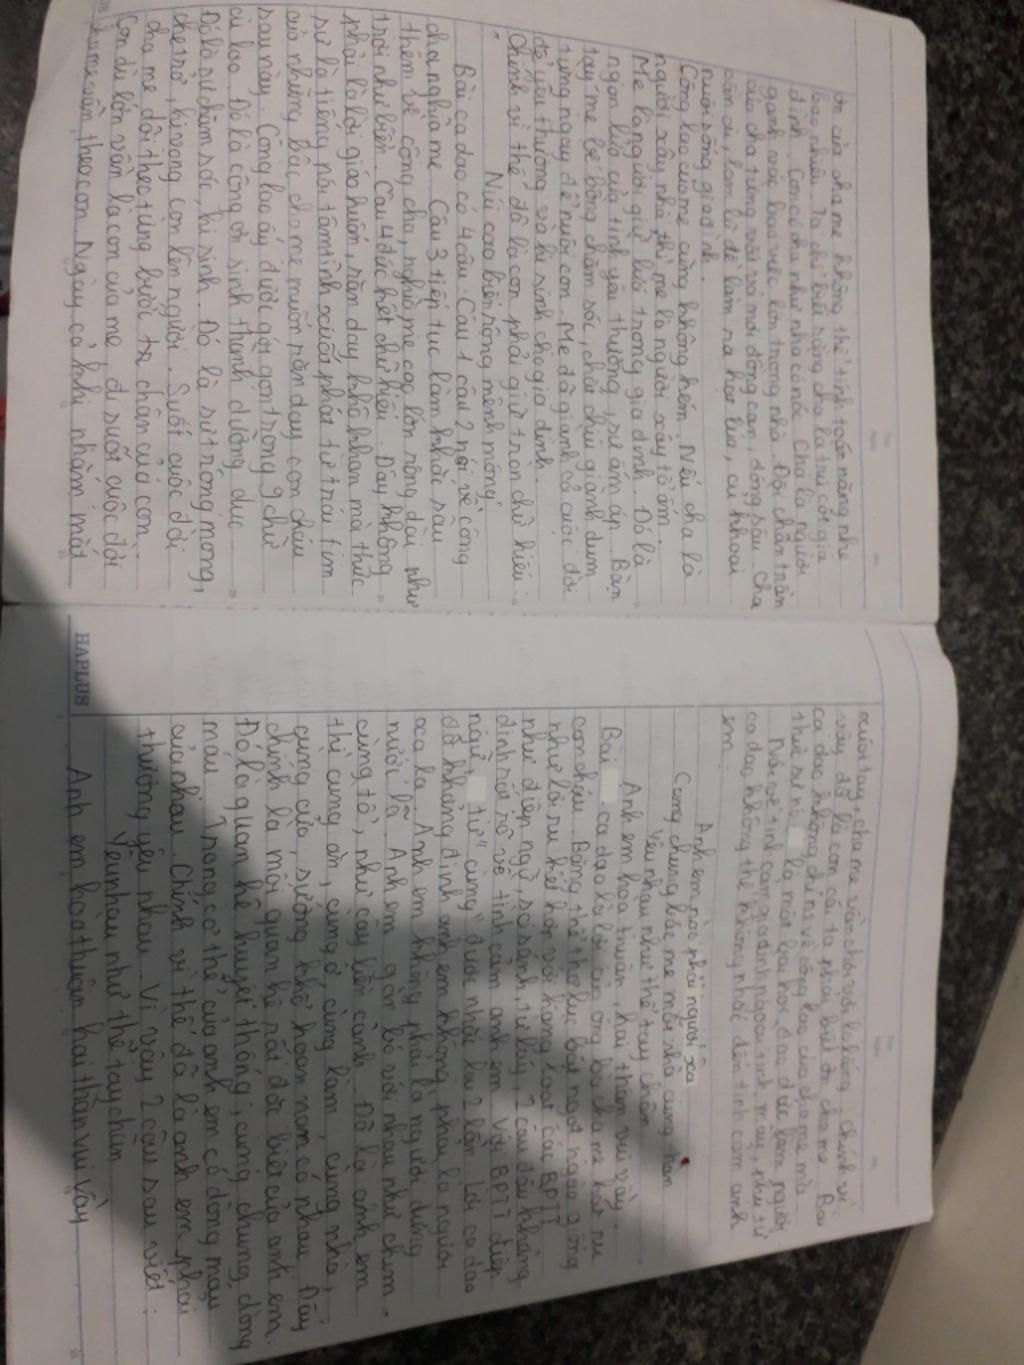 ơn của cha mẹ không thể tính toán rằng như
bao nhiêu. Ta chỉ biết rằng cha là trụ cột gia
đình. Con có cha như nhà có nóc. Cha là người
gánh vác bao việc lớn trong nhà. Đôi chân trần
của cha từng vất vả nơi đồng cạn, đồng sâu. Cha
cần cù, lam lũ để làm ra hạt lúa, củ khoai
nuôi sống gia đình.
Công lao của mẹ cũng không kém. Nếu cha là
người xây nhà thì mẹ là người xây tổ ấm.
Mẹ là người giữ lửa trong gia đình. Đó là
ngọn lửa của tình yêu thương, sự ấm áp. Bàn
tay mẹ bế bồng chăm sóc, chắt chiu giành dụm
từng ngày để nuôi con. Mẹ đã giành cả cuộc đời
để yêu thương và hi sinh cho gia đình.
Chính vì thế đó là con phải giữ tròn chữ hiếu:
" Núi cao biển rộng mênh mông"
Bài ca dao có 4 câu. Câu 1 câu 2 nói về công
cha nghĩa mẹ. Câu 3 tiếp tục làm khắc sâu
thêm về công cha, nghĩa mẹ cao lớn rộng dài như
trời như biển. Câu 4 đúc kết chữ hiếu. Đây không
phải là lời giáo huấn, răn dạy khô khan mà thực
sự là tiếng nói tâm tình xuất phát từ trái tim
của những bậc cha mẹ muốn răn dạy con cháu
sau này. Công lao ấy được gói gọn trong 9 chữ
cù lao. Đó là công ơn sinh thành dưỡng dục
Đó là sự chăm sóc, hi sinh. Đó là sự trông mong,
che trở, kì vọng con lên người. Suốt cuộc đời
cha mẹ dõi theo từng bước chân của con.
Con dù lớn vẫn là con của mẹ đi suốt cuộc đời
cha mẹ vẫn theo con. Ngay cả khi nhắm mắt
xuôi tay, cha mẹ vẫn chơi vơi lo lắng. Chính vì
vậy đó là con cái ta phải biết ơn cha mẹ. Bài
ca dao không chỉ nói về công lao của cha mẹ mà
thực sự nó là một bài học đạo đức làm người
Nói về tình cảm gia đình ngoài tình mẫu, phụ tử
ca dao không thể không nhắc đến tình cảm anh
em.
Anh em nào phải người xa
Cùng chung bác mẹ một nhà cùng thân
Yêu nhau như thể tay chân
Anh em hoà thuận, hai thân vui vầy.
Bài ca dao là lời của ông bà cha mẹ hát ru
con cháu. Bằng thể thơ lục bát ngọt ngào giống
như lời ru kết hợp với hàng loạt các BPTT
như điệp ngữ, so sánh, từ láy, 2 câu đầu khẳng
định rất rõ về tình cảm anh em. Với BPTT điệp
ngữ, từ "cùng" được nhắc lại 2 lần. Lời ca dao
đã khẳng định anh em không phải là người
xa lạ. Anh em không phải là người dưng
nước lã. Anh em gắn bó với nhau như chim
cùng tổ, như cây liền cành. Đó là anh em
thì cùng ăn, cùng ở, cùng làm, cùng nhà,
cùng cửa, sướng khổ hoạn nạn có nhau. Đây
chính là mối quan hệ rất đặc biệt của anh em.
Đó là quan hệ huyết thống; cùng chung, dòng
máu. Trong cơ thể của anh em có dòng máu
của nhau. Chính vì thế đó là anh em phải
thương yêu nhau. Vì vậy 2 câu sau viết:
Yêu nhau như thể tay chân
Anh em hoà thuận hai thân vui vầy
HAPLUS